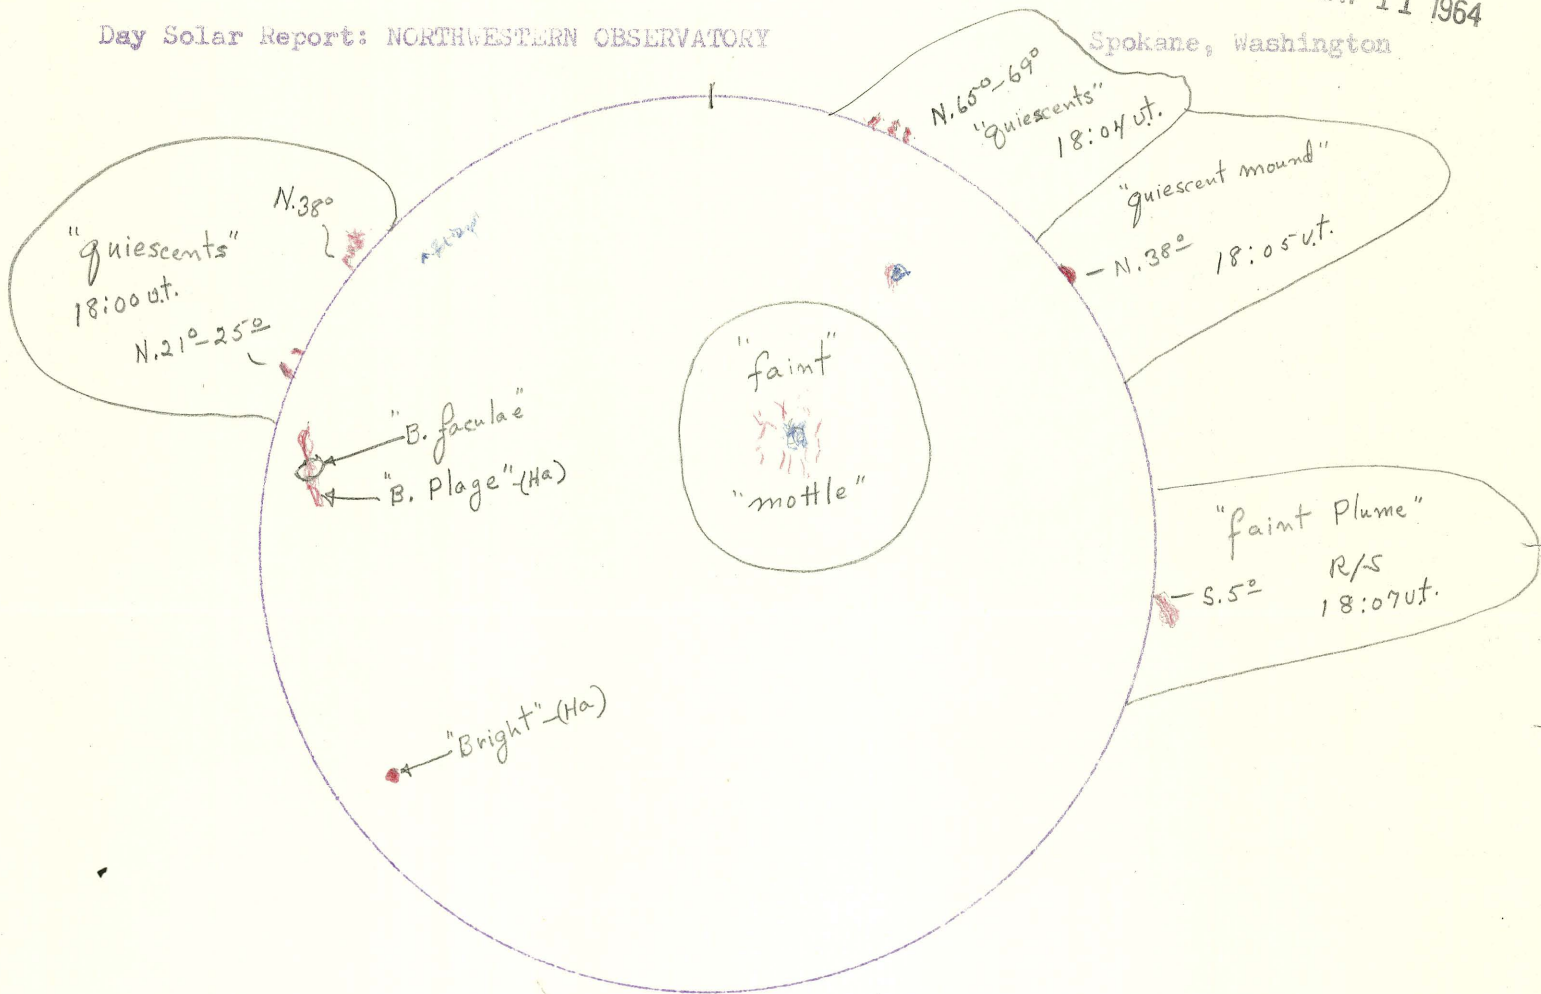 11 1964
Day Solar Report: NORTHWESTERN OBSERVATORY
Spokane, Washington
N.65°-69°
"quiescents"
18:04 u.t.
"quiescent mound"
- N.38°
18:05 u.t.
N.38°
"quiescents"
18:00 u.t.
N.21°-25°
"B. faculae"
"B. Plage"-(Ha)
"faint"
"mottle"
"faint Plume"
- S.5°
R/S
18:07 u.t.
"Bright"-(Ha)